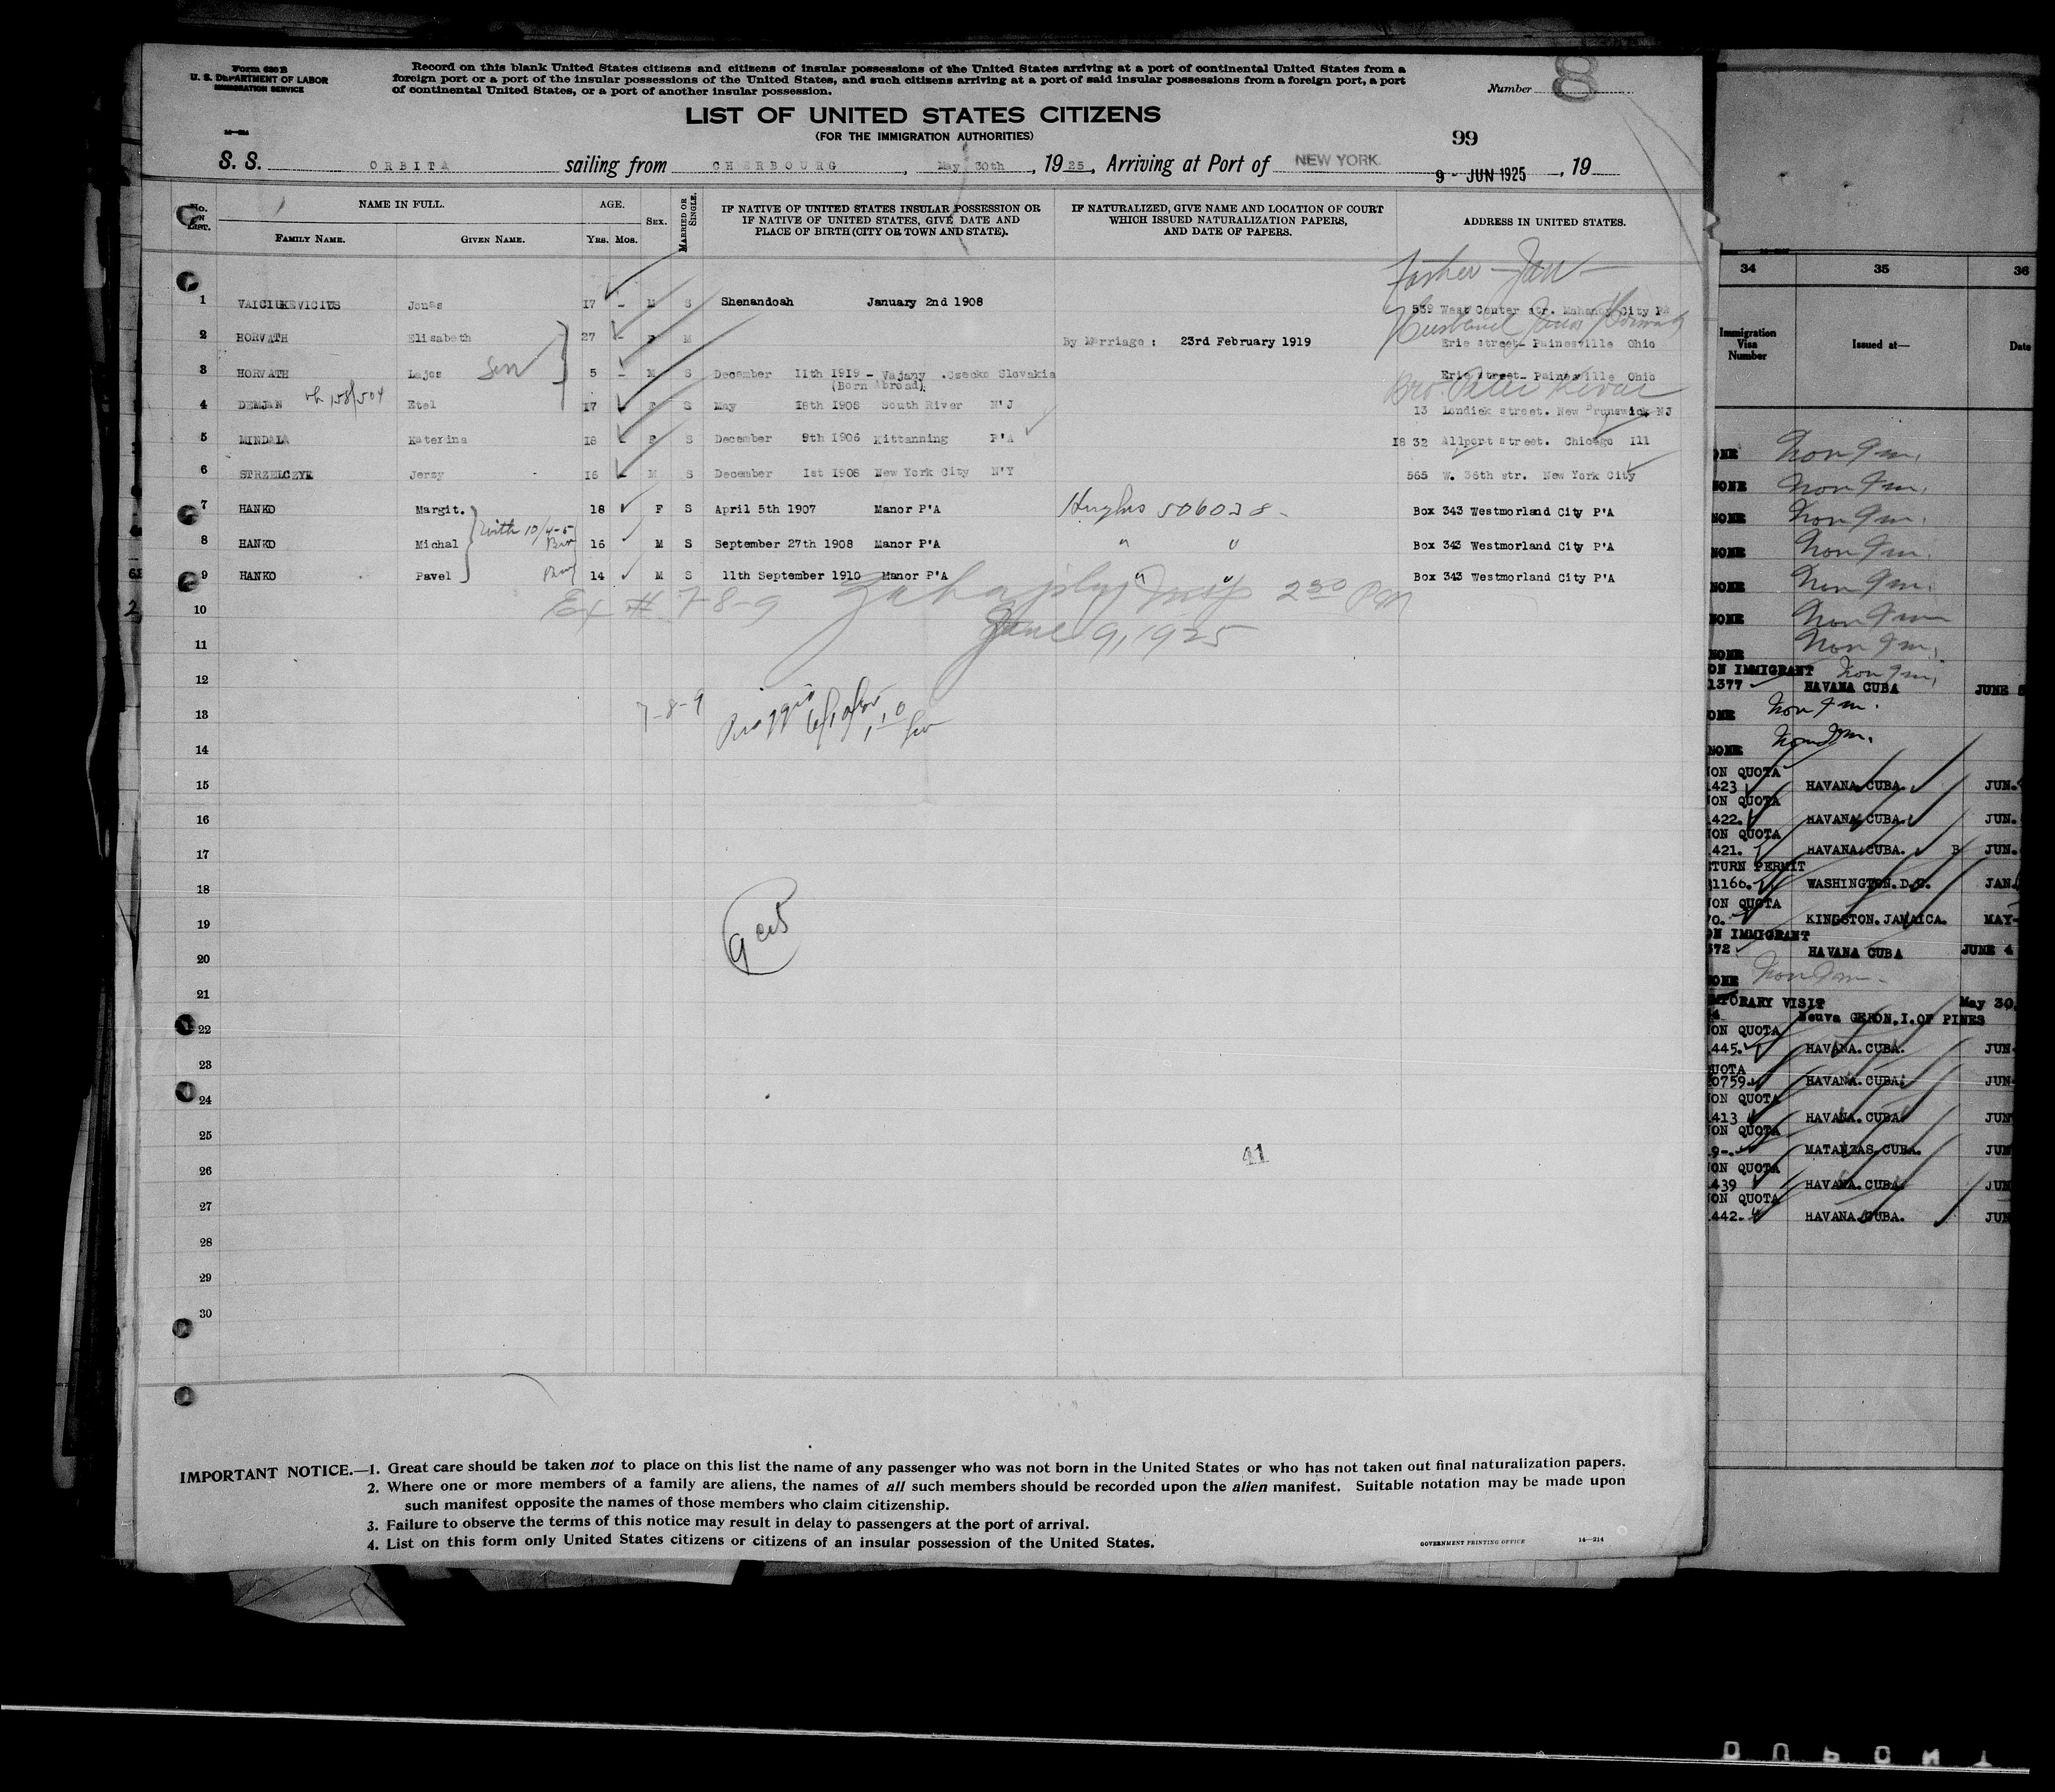 Form 630 B
U. S. DEPARTMENT OF LABOR
IMMIGRATION SERVICE
Record on this blank United States citizens and citizens of insular possessions of the United States arriving at a port of continental United States from a
foreign port or a port of the insular possessions of the United States, and such citizens arriving at a port of said insular possessions from a foreign port, a port
of continental United States, or a port of another insular possession.
Number
8
LIST OF UNITED STATES CITIZENS
(FOR THE IMMIGRATION AUTHORITIES)
14—214
99
S. S. ORBITA sailing from CHERBOURG, May 30th, 1925, Arriving at Port of NEW YORK. 9 - JUN 1925, 19
No. on List. NAME IN FULL. AGE. SEX. MARRIED OR SINGLE. IF NATIVE OF UNITED STATES INSULAR POSSESSION OR IF NATIVE OF UNITED STATES, GIVE DATE AND PLACE OF BIRTH (CITY OR TOWN AND STATE). IF NATURALIZED, GIVE NAME AND LOCATION OF COURT WHICH ISSUED NATURALIZATION PAPERS, AND DATE OF PAPERS. ADDRESS IN UNITED STATES.
FAMILY NAME. GIVEN NAME. YRS. MOS.
Father – Jan –
1 VAICIUKEVICIUS Jonas 17 - M S Shenandoah January 2nd 1908 539 West Center str. Mahanoy City Pa
Husband
2 HORVATH Elisabeth 27 - F M By Marriage : 23rd February 1919 Erie street- Painesville Ohio
3 HORVATH Lajos Son 5 - M S December 11th 1919 - Vajany .Czecko Slovakia Erie street- Painesville Ohio
(Born Abroad)
Bro. Peter
4 DEMJAN Etel 17 - F S May 18th 1908 South River N'J 13 Londick street. New Brunswick NJ
5 MINDALA Katerina 18 - F S December 9th 1906 Kittanning P'A 18 32 Allport street. Chicago Ill
6 STRZELCZYK Jerzy 16 - M S December 1st 1908 New York City N'Y 565 W. 36th str. New York City
7 HANKO Margit. 18 F S April 5th 1907 Manor P'A Hughes 506038 - Box 343 Westmorland City P'A
with 10/4-5
8 HANKO Michal Bro 16 M S September 27th 1908 Manor P'A " " Box 343 Westmorland City P'A
9 HANKO Pavel Bro 14 M S 11th September 1910 Manor P'A " " Box 343 Westmorland City P'A
Ex # 7-8-9 Insp 2 30 PM
10
June 9, 1925
11
12
7-8-9
13
14
15
16
17
18
19
9 cit
20
21
22
23
24
25
41
26
27
28
29
30
IMPORTANT NOTICE.—1. Great care should be taken not to place on this list the name of any passenger who was not born in the United States or who has not taken out final naturalization papers.
2. Where one or more members of a family are aliens, the names of all such members should be recorded upon the alien manifest. Suitable notation may be made upon
such manifest opposite the names of those members who claim citizenship.
3. Failure to observe the terms of this notice may result in delay to passengers at the port of arrival.
4. List on this form only United States citizens or citizens of an insular possession of the United States.
GOVERNMENT PRINTING OFFICE 14—214
34 35 36
Immigration Visa Number Issued at— Date
NONE
NONE
NONE
NONE
NONE
NONE
ON IMMIGRANT
1377 HAVANA CUBA JUNE 5
NONE
ON QUOTA
423 HAVANA.CUBA. JUN.
ON QUOTA
422. HAVANA.CUBA. JUN.
ON QUOTA
421. HAVANA.CUBA. JUN.
TURN PERMIT
1166. WASHINGTON.D.C. JAN.
ON QUOTA
70. KINGSTON.JAMAICA. MAY-
ON IMMIGRANT
372 HAVANA CUBA JUNE 4
TEMPORARY VISIT May 30,
Neuva GERON,I.OF PINES
ON QUOTA
445. HAVANA.CUBA. JUN
QUOTA
0759. HAVANA.CUBA. JUN
ON QUOTA
413 HAVANA.CUBA JUN
ON QUOTA
9-. MATANZAS.CUBA. JUN
ON QUOTA
439 HAVANA.CUBA. JUN
ON QUOTA
442. HAVANA.CUBA. JUN